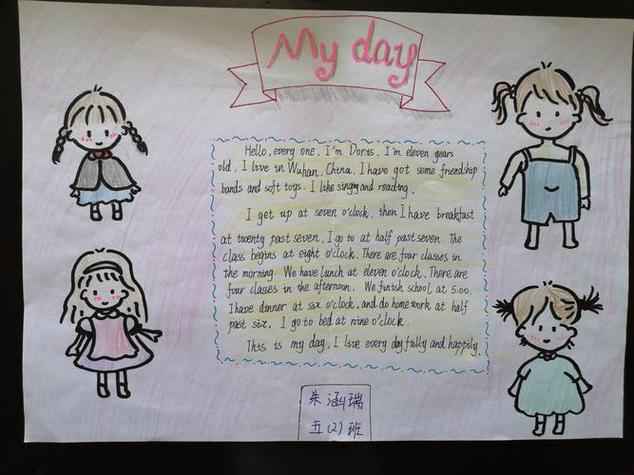 My day
Hello, every one. I'm Doris. I'm eleven years
old. I live in Wuhan, China. I have got some friendship
bands and soft toys. I like singing and reading.
I get up at seven o'clock, then I have breakfast
at twenty past seven. I go to at half past seven. The
class begins at eight o'clock. There are four classes in
the morning. We have lunch at eleven o'clock. There are
four classes in the afternoon. We finish school at 5:00.
I have dinner at six o'clock, and do home work at half
past six. I go to bed at nine o'clock.
This is my day, I live every day fully and happily.
朱涵瑞
五(2)班